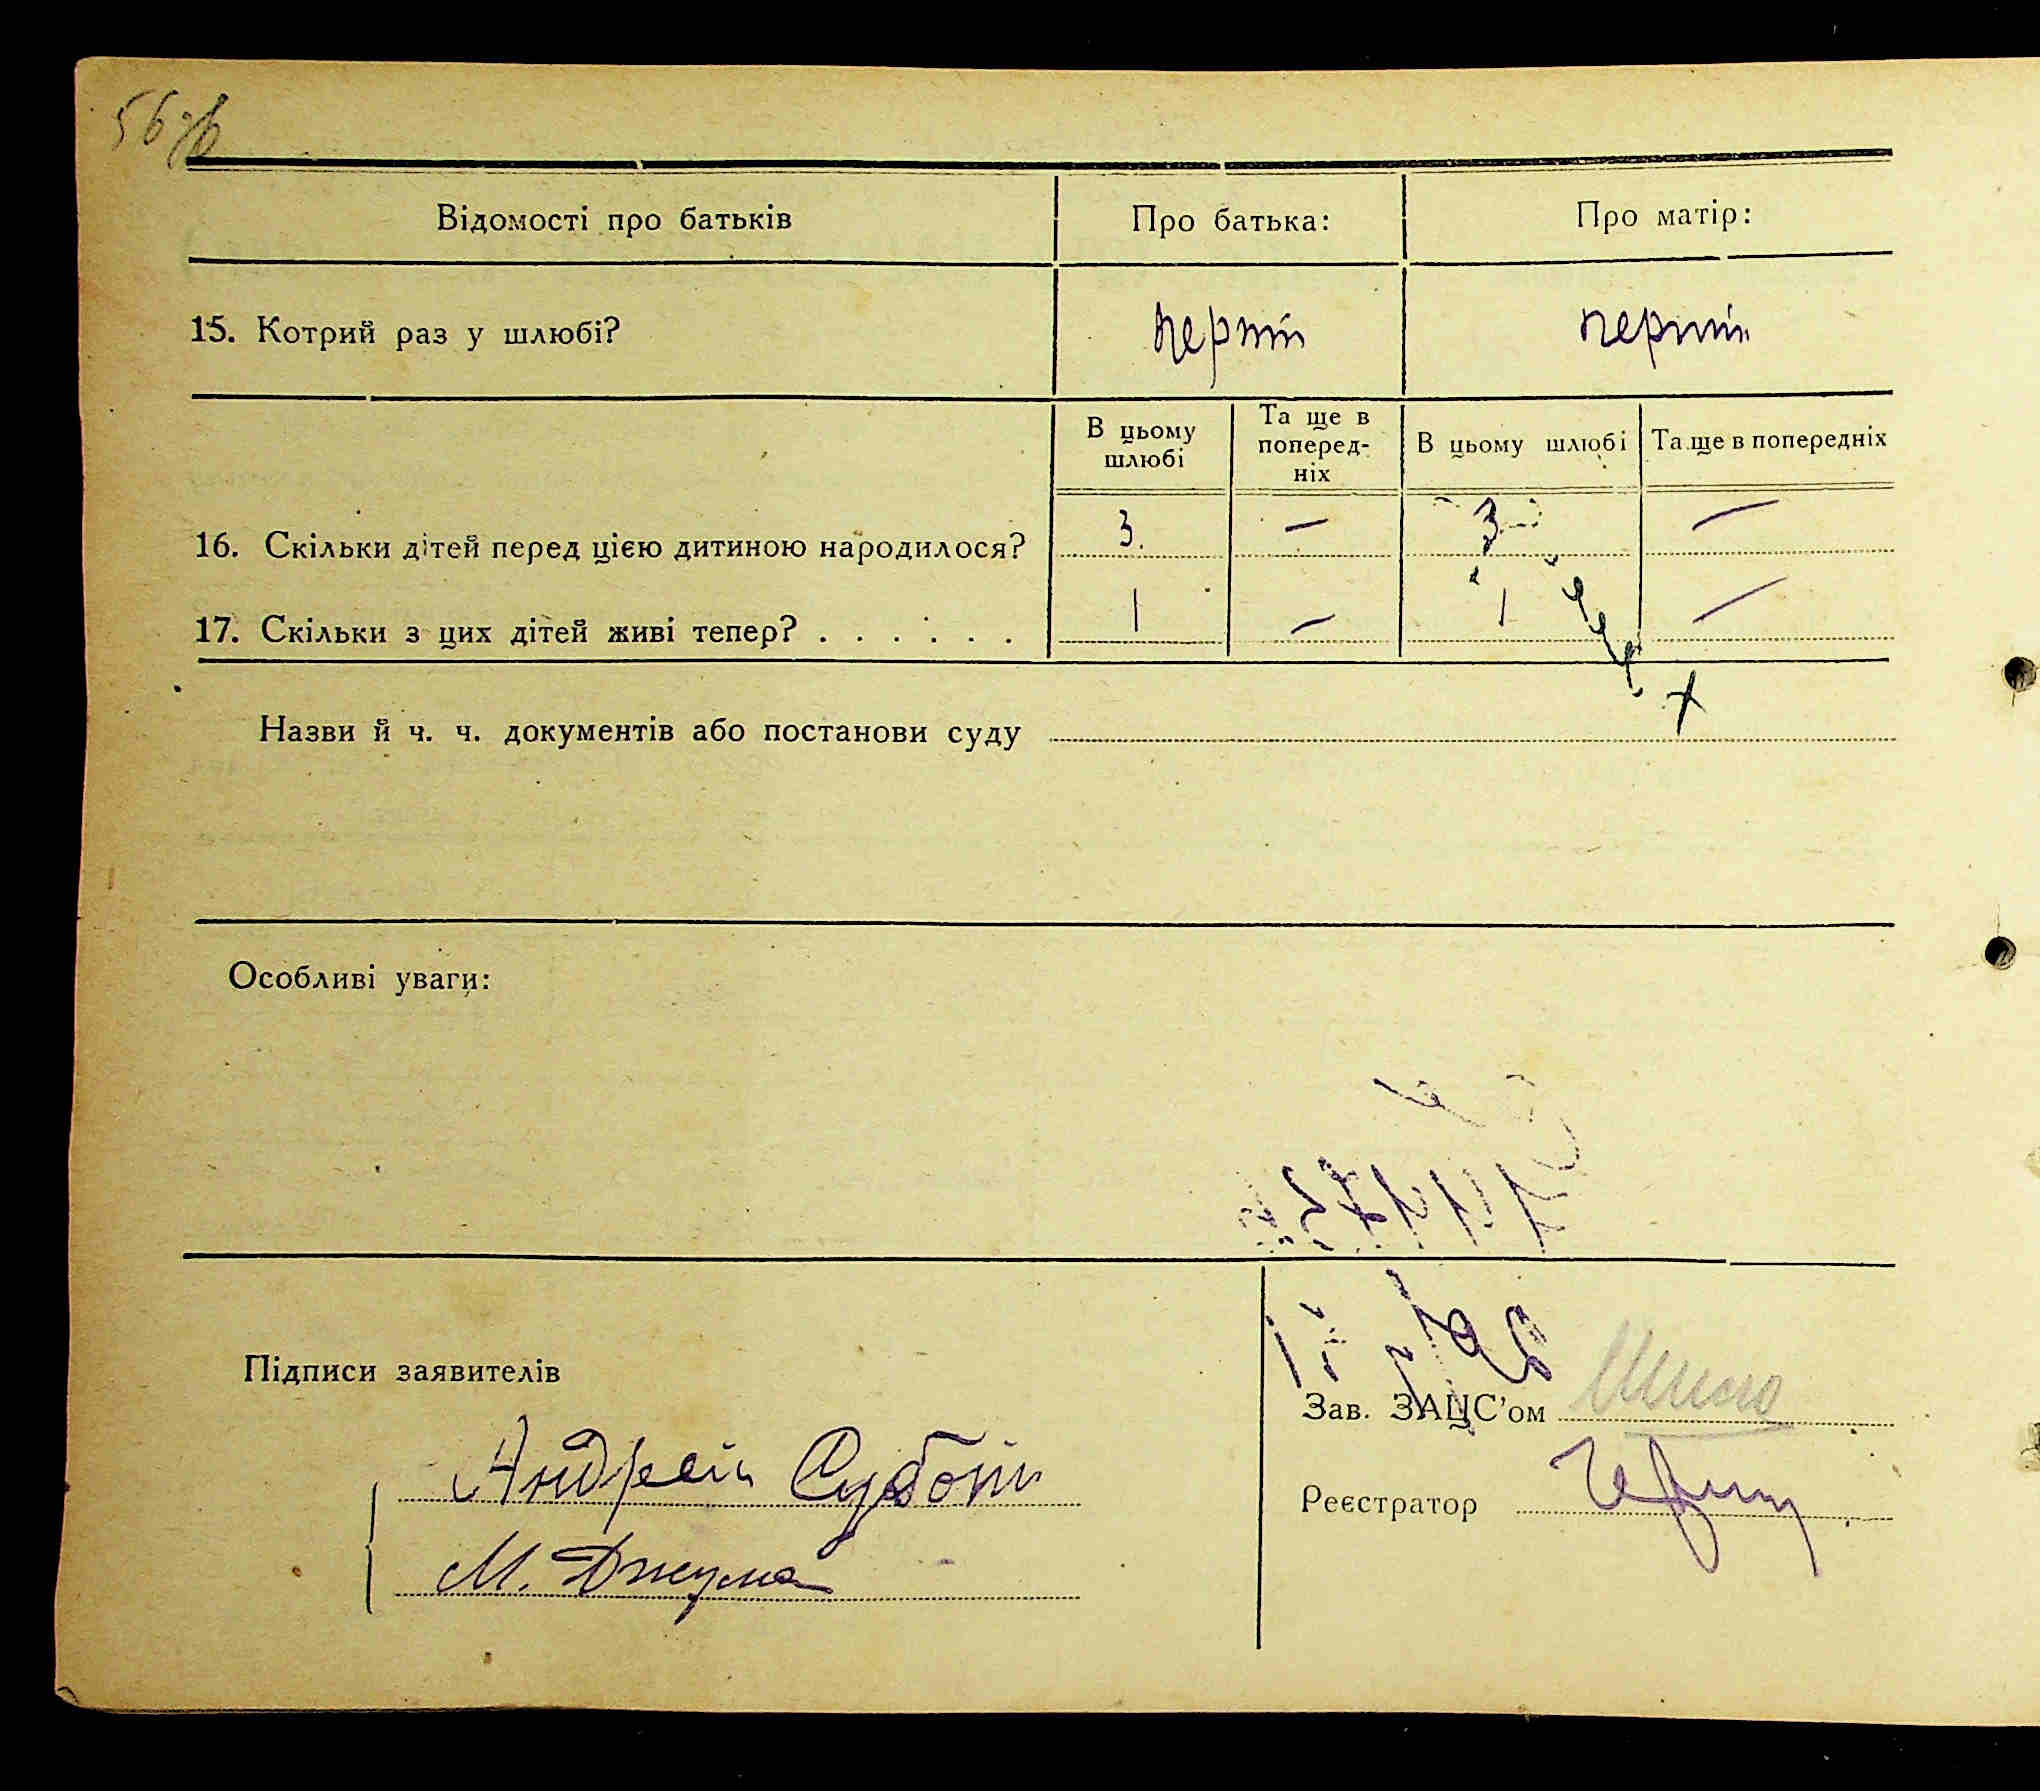 56 зв
Відомості про батьків
Про батька:
Про матір:
15. Котрий раз у шлюбі?
перший
перший
В цьому шлюбі
Та ще в поперед-ніх
В цьому шлюбі
Та ще в попередніх
16. Скільки дітей перед цією дитиною народилося?
3.
—
3
—
17. Скільки з цих дітей живі тепер? . . . . . .
1
—
1
—
Назви й ч. ч. документів або постанови суду
Особливі уваги:
Підписи заявителів
Зав. ЗАЦС'ом
Андрей
Реєстратор
М. Джума